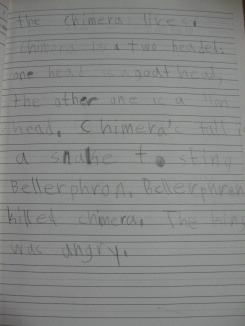 the chimera lives.
Chimera is a two headed:
one head is a goat head,
the other one is a lion
head. Chimera's tail is
a snake to sting
Bellerphron. Bellerphron
killed chimera. The king
was angry.